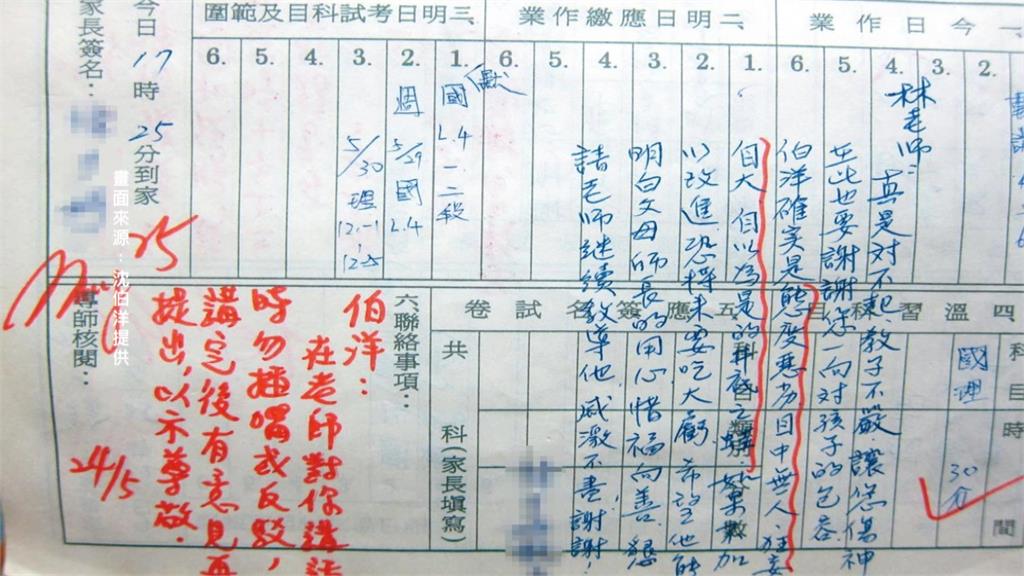 一今日作業
2.
3.
4.
5.
6.
二明日應繳作業
1.
2.
3.
4.
5.
6.
三明日考試科目及範圍
1.
2.
3.
4.
5.
6.
國 L.4 一、二段
週 5/29 國 L.4
5/30 理 12-1
林老師:
真是對不起,教子不嚴,讓您傷神
在此也要謝謝您一向對孩子的包容
伯洋確實是態度惡劣目中無人、狂妄
自大、自以為是的井底之蛙
以改進恐將來要吃大虧,希望他能
明白父母師長的用心惜福向善,懇
請老師繼續教導他,感激不盡,謝謝!
今日17時25分到家
家長簽名:
四溫習科目
科目
時間
國
理
30分
五應簽名試卷
共 科(家長填寫)
六、聯絡事項:
伯洋:
在老師對你講話
時勿插嘴或反駁,
講完後有意見再
提出,以示尊敬.
24/5
導師核閱:
畫面來源:沈伯洋提供